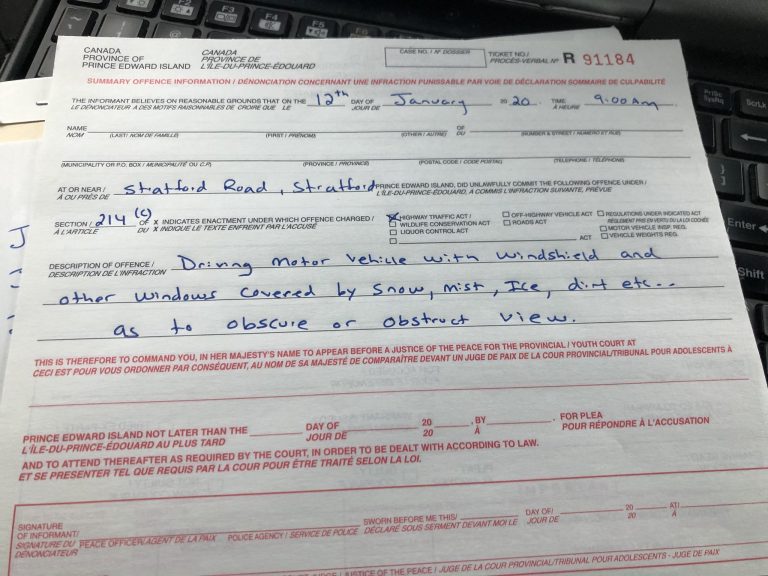 CANADA
PROVINCE OF
PRINCE EDWARD ISLAND
CANADA
PROVINCE DE
L'ÎLE-DU-PRINCE-ÉDOUARD
CASE NO. / Nº DOSSIER
TICKET NO./
PROCÈS-VERBAL Nº R 91184
SUMMARY OFFENCE INFORMATION / DÉNONCIATION CONCERNANT UNE INFRACTION PUNISSABLE PAR VOIE DE DÉCLARATION SOMMAIRE DE CULPABILITÉ
THE INFORMANT BELIEVES ON REASONABLE GROUNDS THAT ON THE 12th DAY OF January 20 20 TIME 9:00 Am
LE DÉNONCIATEUR A DES MOTIFS RAISONNABLES DE CROIRE QUE LE JOUR DE À HEURE
NAME OF
NOM (LAST/ NOM DE FAMILLE) (FIRST / PRÉNOM) (OTHER / AUTRE) DU (NUMBER & STREET / NUMÉRO ET RUE)
(MUNICIPALITY OR P.O. BOX / MUNICIPALITÉ OU C.P.) (PROVINCE / PROVINCE) (POSTAL CODE / CODE POSTAL) (TELEPHONE / TÉLÉPHONE)
AT OR NEAR / Stratford Road, Stratford PRINCE EDWARD ISLAND, DID UNLAWFULLY COMMIT THE FOLLOWING OFFENCE UNDER /
À OU PRÈS DE L'ÎLE-DU-PRINCE-ÉDOUARD, A COMMIS L'INFRACTION SUIVANTE, PRÉVUE
SECTION / 214 (c) OF X INDICATES ENACTMENT UNDER WHICH OFFENCE CHARGED /
À L'ARTICLE DU X INDIQUE LE TEXTE ENFREINT PAR L'ACCUSÉ
HIGHWAY TRAFFIC ACT /
WILDLIFE CONSERVATION ACT
LIQUOR CONTROL ACT
ACT
OFF-HIGHWAY VEHICLE ACT
ROADS ACT
REGULATIONS UNDER INDICATED ACT
RÈGLEMENT PRIS EN VERTU DE LA LOI COCHÉE
MOTOR VEHICLE INSP. REG.
VEHICLE WEIGHTS REG.
DESCRIPTION OF OFFENCE / Driving motor vehicle with windshield and
DESCRIPTION DE L'INFRACTION
other windows covered by snow, mist, Ice, dirt etc...
as to obscure or obstruct view.
THIS IS THEREFORE TO COMMAND YOU, IN HER MAJESTY'S NAME TO APPEAR BEFORE A JUSTICE OF THE PEACE FOR THE PROVINCIAL / YOUTH COURT AT
CECI EST POUR VOUS ORDONNER PAR CONSÉQUENT, AU NOM DE SA MAJESTÉ DE COMPARAÎTRE DEVANT UN JUGE DE PAIX DE LA COUR PROVINCIAL/TRIBUNAL POUR ADOLESCENTS À
PRINCE EDWARD ISLAND NOT LATER THAN THE DAY OF 20 , BY FOR PLEA
L'ÎLE-DU-PRINCE-ÉDOUARD AU PLUS TARD JOUR DE 20 À POUR RÉPONDRE À L'ACCUSATION
AND TO ATTEND THEREAFTER AS REQUIRED BY THE COURT, IN ORDER TO BE DEALT WITH ACCORDING TO LAW.
ET SE PRESENTER TEL QUE REQUIS PAR LA COUR POUR ÊTRE TRAITÉ SELON LA LOI.
SIGNATURE
OF INFORMANT/ SWORN BEFORE ME THIS/ DAY OF/ 20 AT/
SIGNATURE DU PEACE OFFICER/AGENT DE LA PAIX POLICE AGENCY / SERVICE DE POLICE DÉCLARÉ SOUS SERMENT DEVANT MOI LE JOUR DE 20 À
DÉNONCIATEUR
JUSTICE OF THE PEACE / JUGE DE LA COUR PROVINCIAL/TRIBUNAL POUR ADOLESCENTS - JUGE DE PAIX
F3
F4
F5
PrtSc
SysRq
ScrLk
Enter
Shift